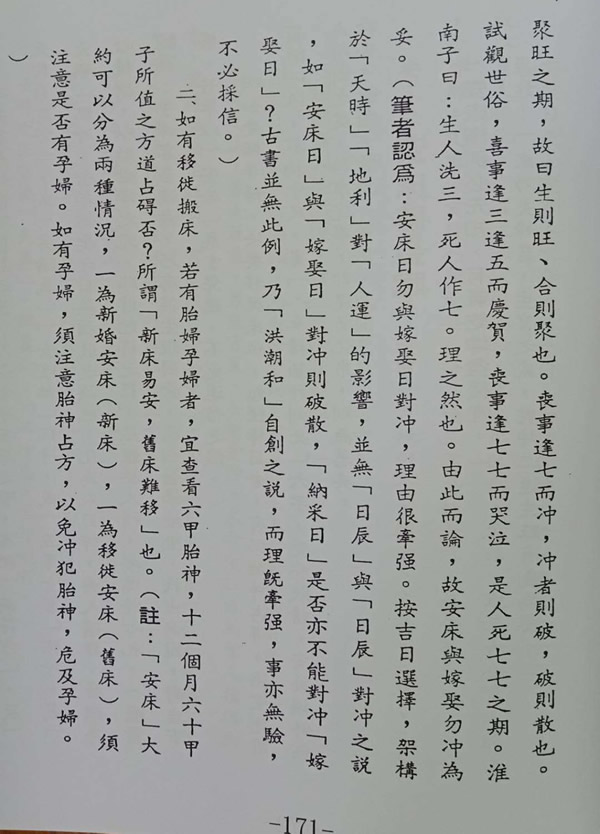 聚旺之期，故曰生則旺、合則聚也。喪事逢七而冲，冲者則破，破則散也。
試觀世俗，喜事逢三逢五而慶賀，喪事逢七七而哭泣，是人死七七之期。淮
南子曰：生人洗三，死人作七。理之然也。由此而論，故安床與嫁娶勿冲為
妥。（筆者認為：安床日勿與嫁娶日對冲，理由很牽强。按吉日選擇，架構
於「天時」「地利」對「人運」的影響，並無「日辰」與「日辰」對冲之說
，如「安床日」與「嫁娶日」對冲則破散，「納采日」是否亦不能對冲「嫁
娶日」？古書並無此例，乃「洪潮和」自創之説，而理既牽强，事亦無驗，
不必採信。）
二、如有移徙搬床，若有胎婦孕婦者，宜查看六甲胎神，十二個月六十甲
子所值之方道占碍否？所謂「新床易安，舊床難移」也。（註：「安床」大
約可以分為兩種情況，一為新婚安床（新床），一為移徙安床（舊床），須
注意是否有孕婦。如有孕婦，須注意胎神占方，以免冲犯胎神，危及孕婦。
）
-171-